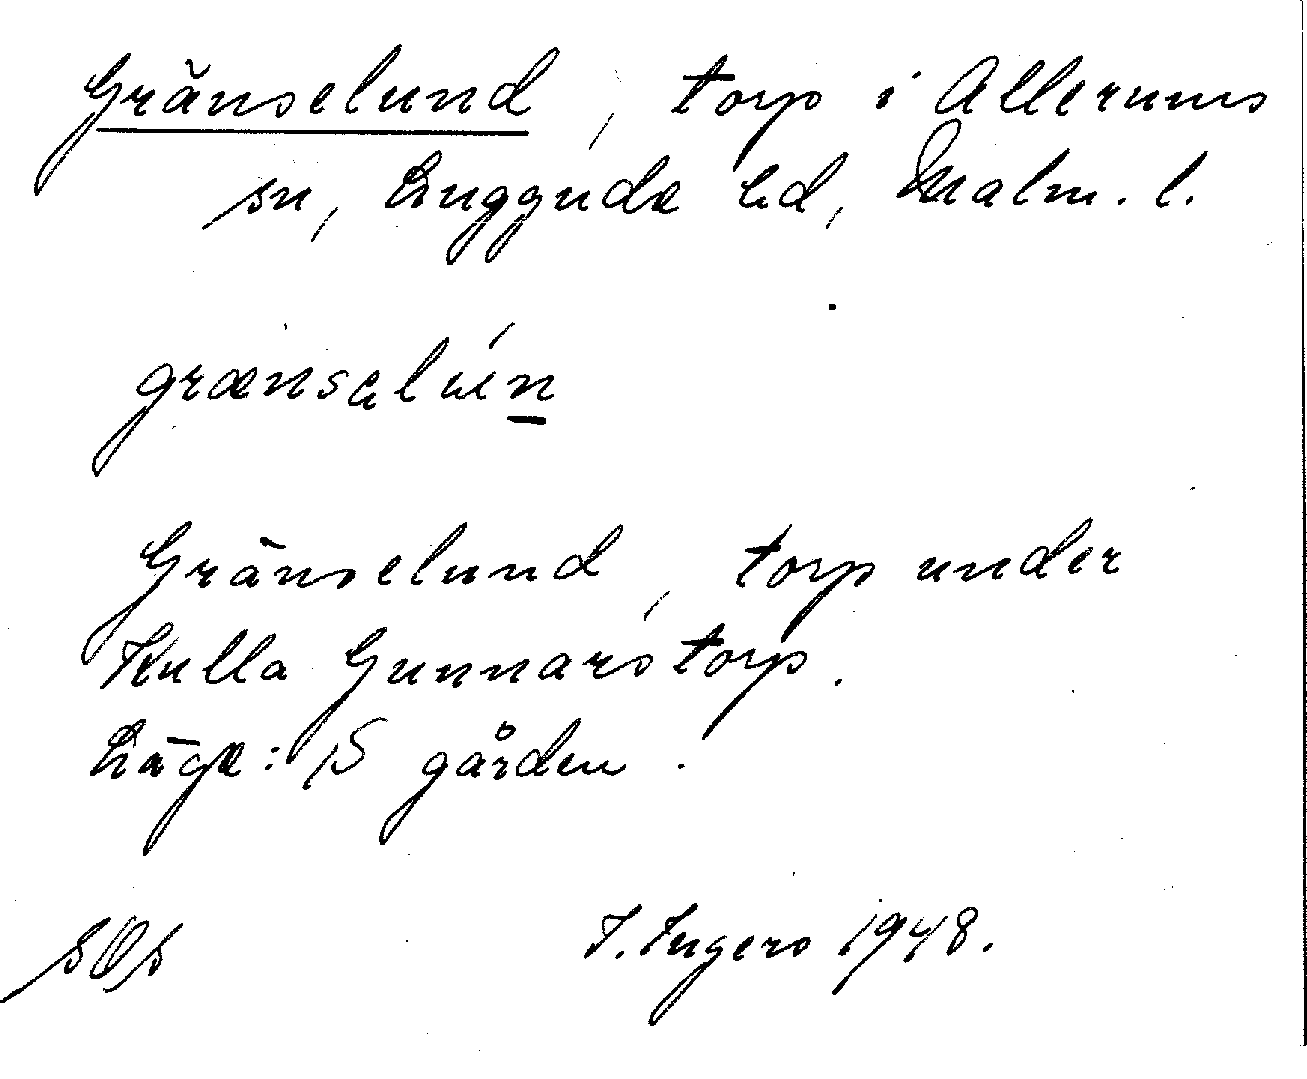 Gränselund, torp i Allerums
sn, Luggude hd, Malm. l.
grænsəlún
Gränselund, torp under
Kulla Gunnarstorp.
Läge: S gården.
I. Ingers 1948.